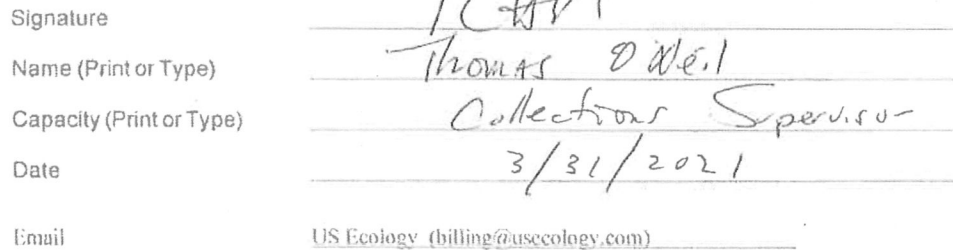 Signature
Name (Print or Type) Thomas O Neil
Capacity (Print or Type) Collections Supervisor
Date 3/31/2021
Email US Ecology (billing@usecology.com)